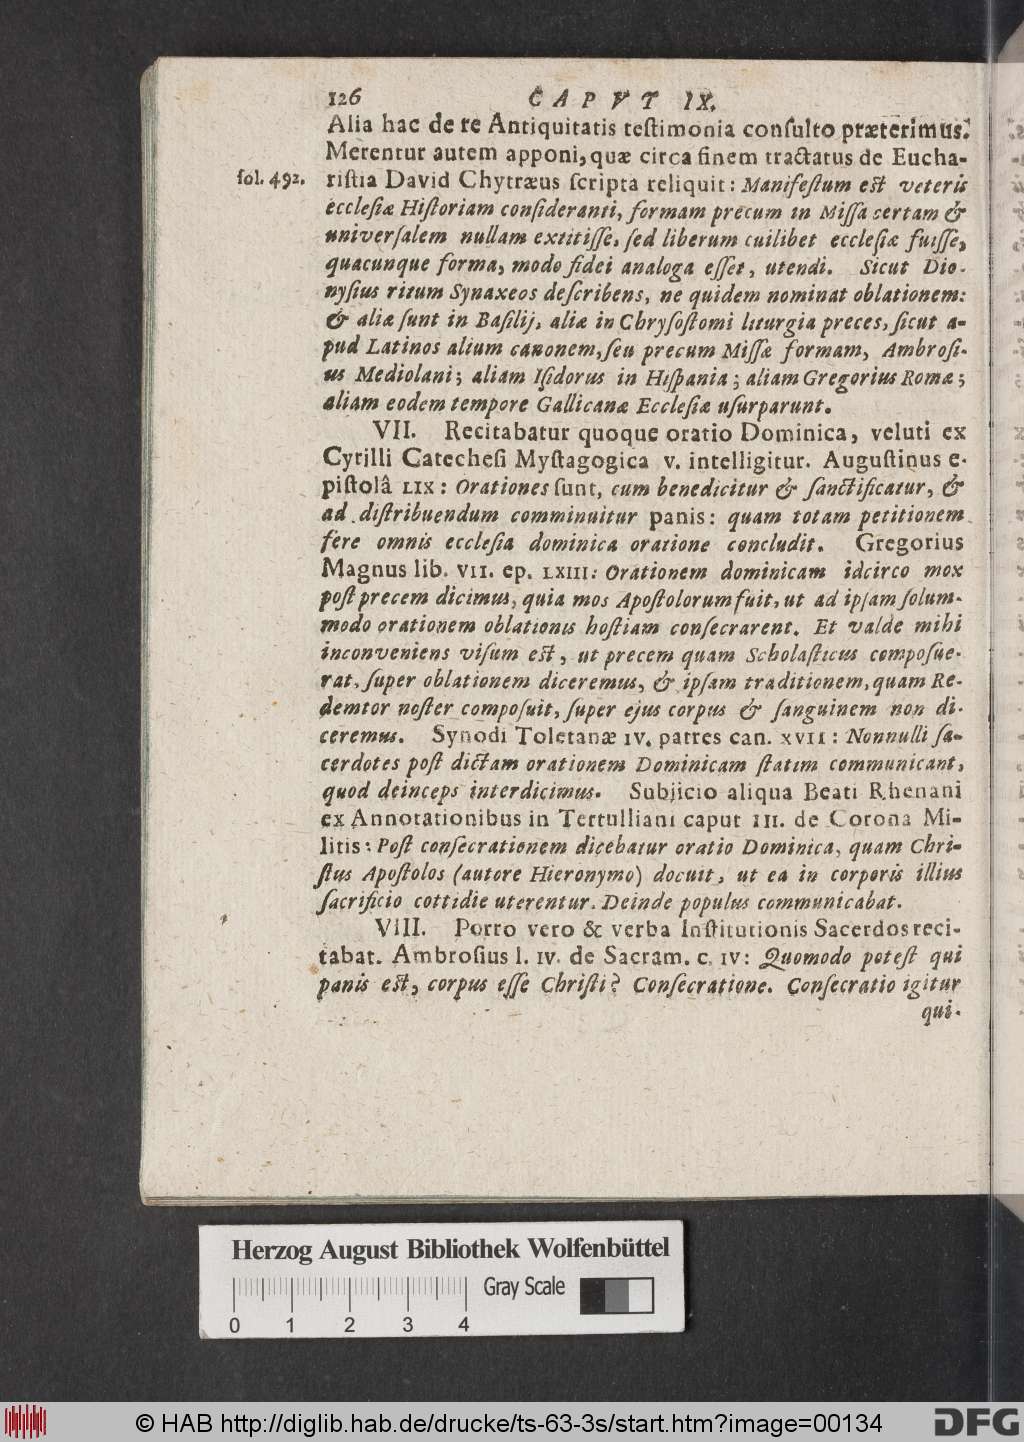 126 CAPVT IX.
Alia hac de re Antiquitatis teſtimonia conſulto præterimus.
Merentur autem apponi, quæ circa finem tractatus de Eucha-
fol. 492. riſtia David Chytræus ſcripta reliquit: Manifeſtum eſt veteris
eccleſiæ Hiſtoriam conſideranti, formam precum in Miſſa certam &
univerſalem nullam extitiſſe, ſed liberum cuilibet eccleſiæ fuiſſe,
quacunque forma, modo fidei analoga eſſet, utendi. Sicut Dio-
nyſius ritum Synaxeos deſcribens, ne quidem nominat oblationem:
& aliæ ſunt in Baſilij, aliæ in Chryſoſtomi liturgia preces, ſicut a-
pud Latinos alium canonem, ſeu precum Miſſæ formam, Ambroſi-
us Mediolani; aliam Iſidorus in Hiſpania; aliam Gregorius Romæ;
aliam eodem tempore Gallicanæ Eccleſiæ uſurparunt.
VII. Recitabatur quoque oratio Dominica, veluti ex
Cyrilli Catecheſi Myſtagogica v. intelligitur. Auguſtinus e-
piſtolâ LIX: Orationes ſunt, cum benedicitur & ſanctificatur, &
ad diſtribuendum comminuitur panis: quam totam petitionem
fere omnis eccleſia dominica oratione concludit. Gregorius
Magnus lib. VII. ep. LXIII: Orationem dominicam idcirco mox
poſt precem dicimus, quia mos Apoſtolorum fuit, ut ad ipſam ſolum-
modo orationem oblationis hoſtiam conſecrarent. Et valde mihi
inconveniens viſum eſt, ut precem quam Scholaſticus compoſue-
rat, ſuper oblationem diceremus, & ipſam traditionem, quam Re-
demtor noſter compoſuit, ſuper ejus corpus & ſanguinem non di-
ceremus. Synodi Toletanæ IV. patres can. XVII: Nonnulli ſa-
cerdotes poſt dictam orationem Dominicam ſtatim communicant,
quod deinceps interdicimus. Subjicio aliqua Beati Rhenani
ex Annotationibus in Tertulliani caput III. de Corona Mi-
litis: Poſt conſecrationem dicebatur oratio Dominica, quam Chri-
ſtus Apoſtolos (autore Hieronymo) docuit, ut ea in corporis illius
ſacrificio cottidie uterentur. Deinde populus communicabat.
VIII. Porro vero & verba Inſtitutionis Sacerdos reci-
tabat. Ambroſius l. IV. de Sacram. c. IV: Quomodo poteſt qui
panis eſt, corpus eſſe Chriſti? Conſecratione. Conſecratio igitur
qui-
Herzog August Bibliothek Wolfenbüttel
Gray Scale
0 1 2 3 4
© HAB http://diglib.hab.de/drucke/ts-63-3s/start.htm?image=00134 DFG